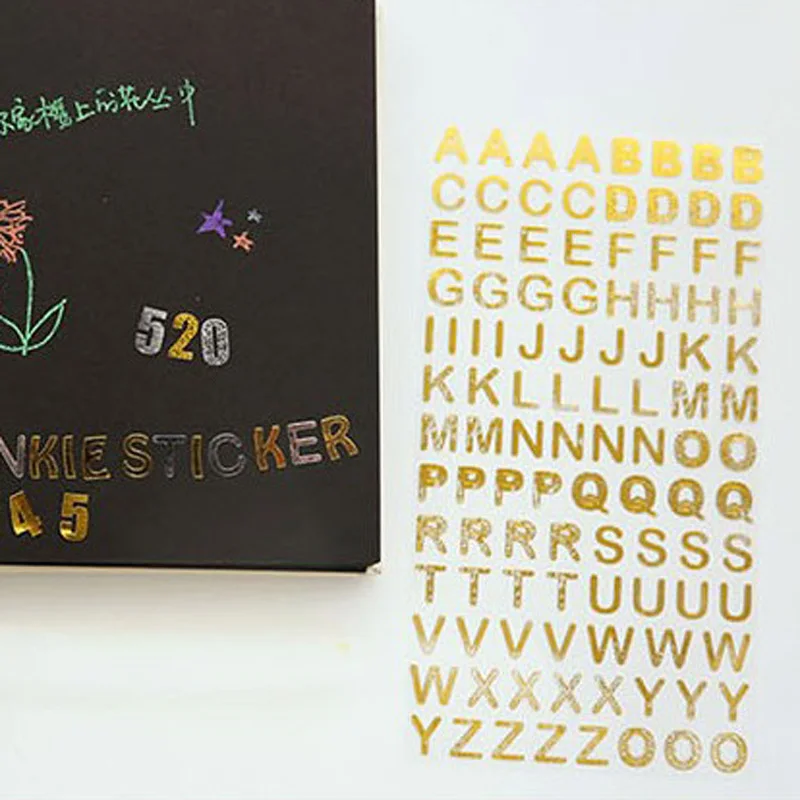 家楼上的花丛中
520
NKIE STICKER
45
AAAABBBB
CCCCDDDD
EEEEFFFF
GGGGHHHH
IIIIJJJJKK
KKLLLLMM
MMNNNNOO
PPPPQQQQ
RRRRSSSS
TTTTUUUU
VVVVWWW
WXXXXYYY
YZZZZOOO